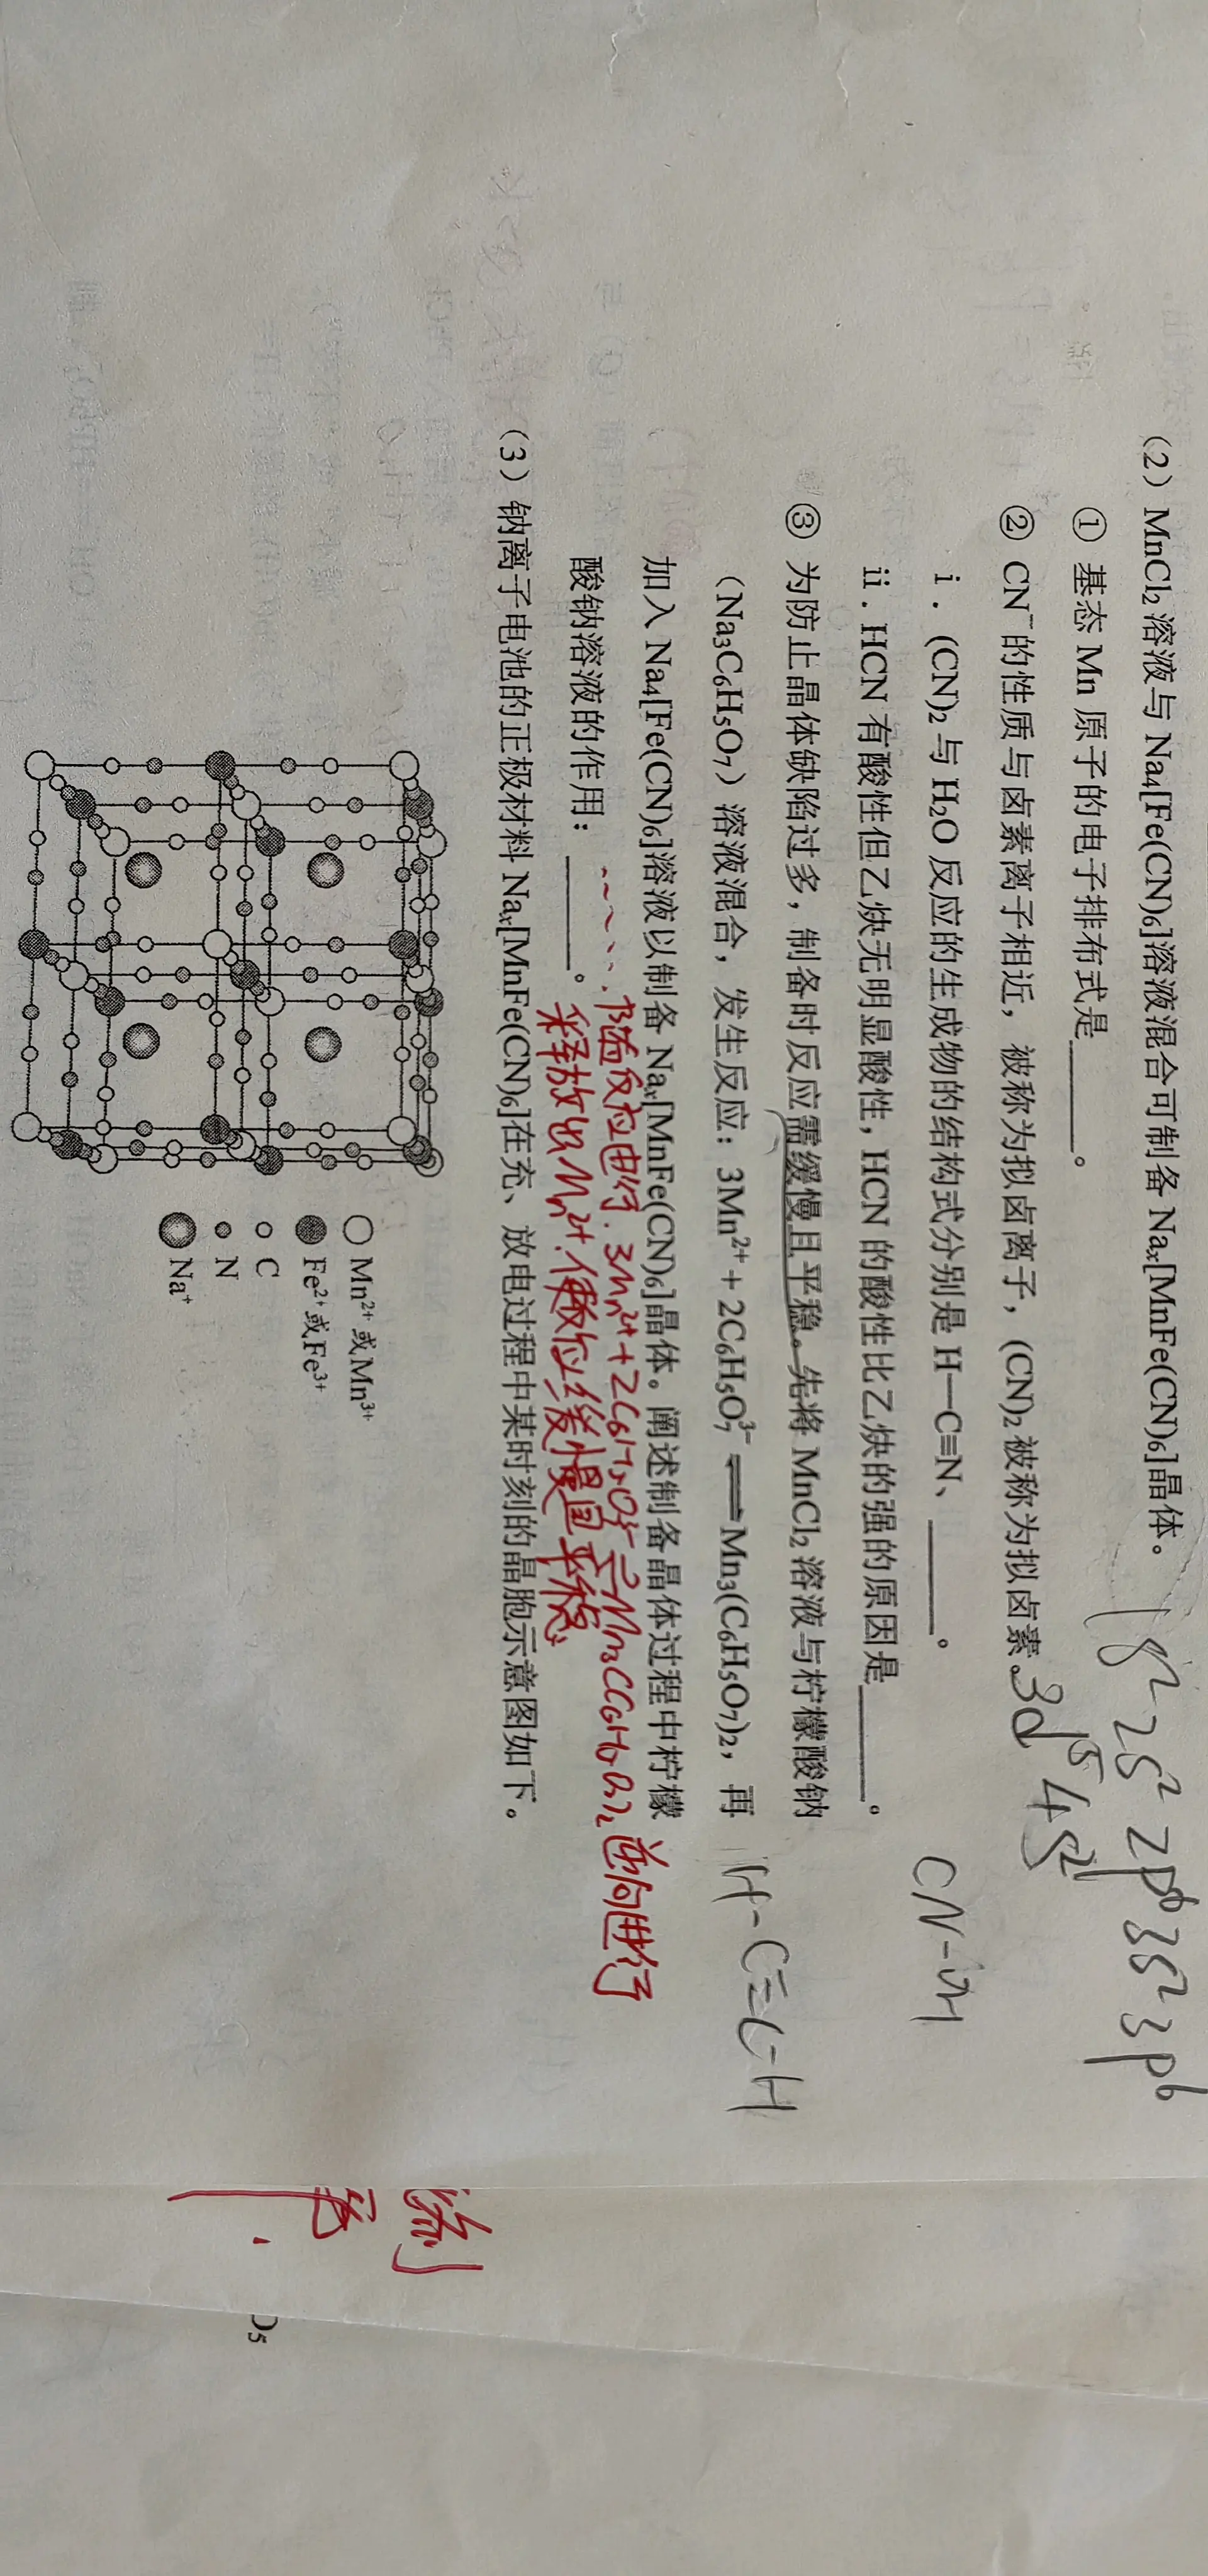 (2) MnCl₂溶液与 Na₄[Fe(CN)₆]溶液混合可制备 Naₓ[MnFe(CN)₆]晶体。
1s² 2s² 2p⁶ 3s² 3p⁶
① 基态 Mn 原子的电子排布式是______。
3d⁵ 4s²
② CN⁻的性质与卤素离子相近，被称为拟卤离子，(CN)₂被称为拟卤素。
i．(CN)₂与 H₂O 反应的生成物的结构式分别是 H—C≡N、______。
CN-OH
ii．HCN 有酸性但乙炔无明显酸性，HCN 的酸性比乙炔的强的原因是______。
③ 为防止晶体缺陷过多，制备时反应需缓慢且平稳。先将 MnCl₂溶液与柠檬酸钠
（Na₃C₆H₅O₇）溶液混合，发生反应：3Mn²⁺ + 2C₆H₅O₇³⁻ ⇌ Mn₃(C₆H₅O₇)₂，再
H-C≡C-H
加入 Na₄[Fe(CN)₆]溶液以制备 Naₓ[MnFe(CN)₆]晶体。阐述制备晶体过程中柠檬
酸钠溶液的作用：______。
随反应进行. 3Mn²⁺+2C₆H₅O₇³⁻⇌Mn₃(C₆H₅O₇)₂ 逆向进行
释放出Mn²⁺.使反应缓慢且平稳
(3) 钠离子电池的正极材料 Naₓ[MnFe(CN)₆]在充、放电过程中某时刻的晶胞示意图如下。
Mn²⁺或Mn³⁺
Fe²⁺或Fe³⁺
C
N
Na⁺